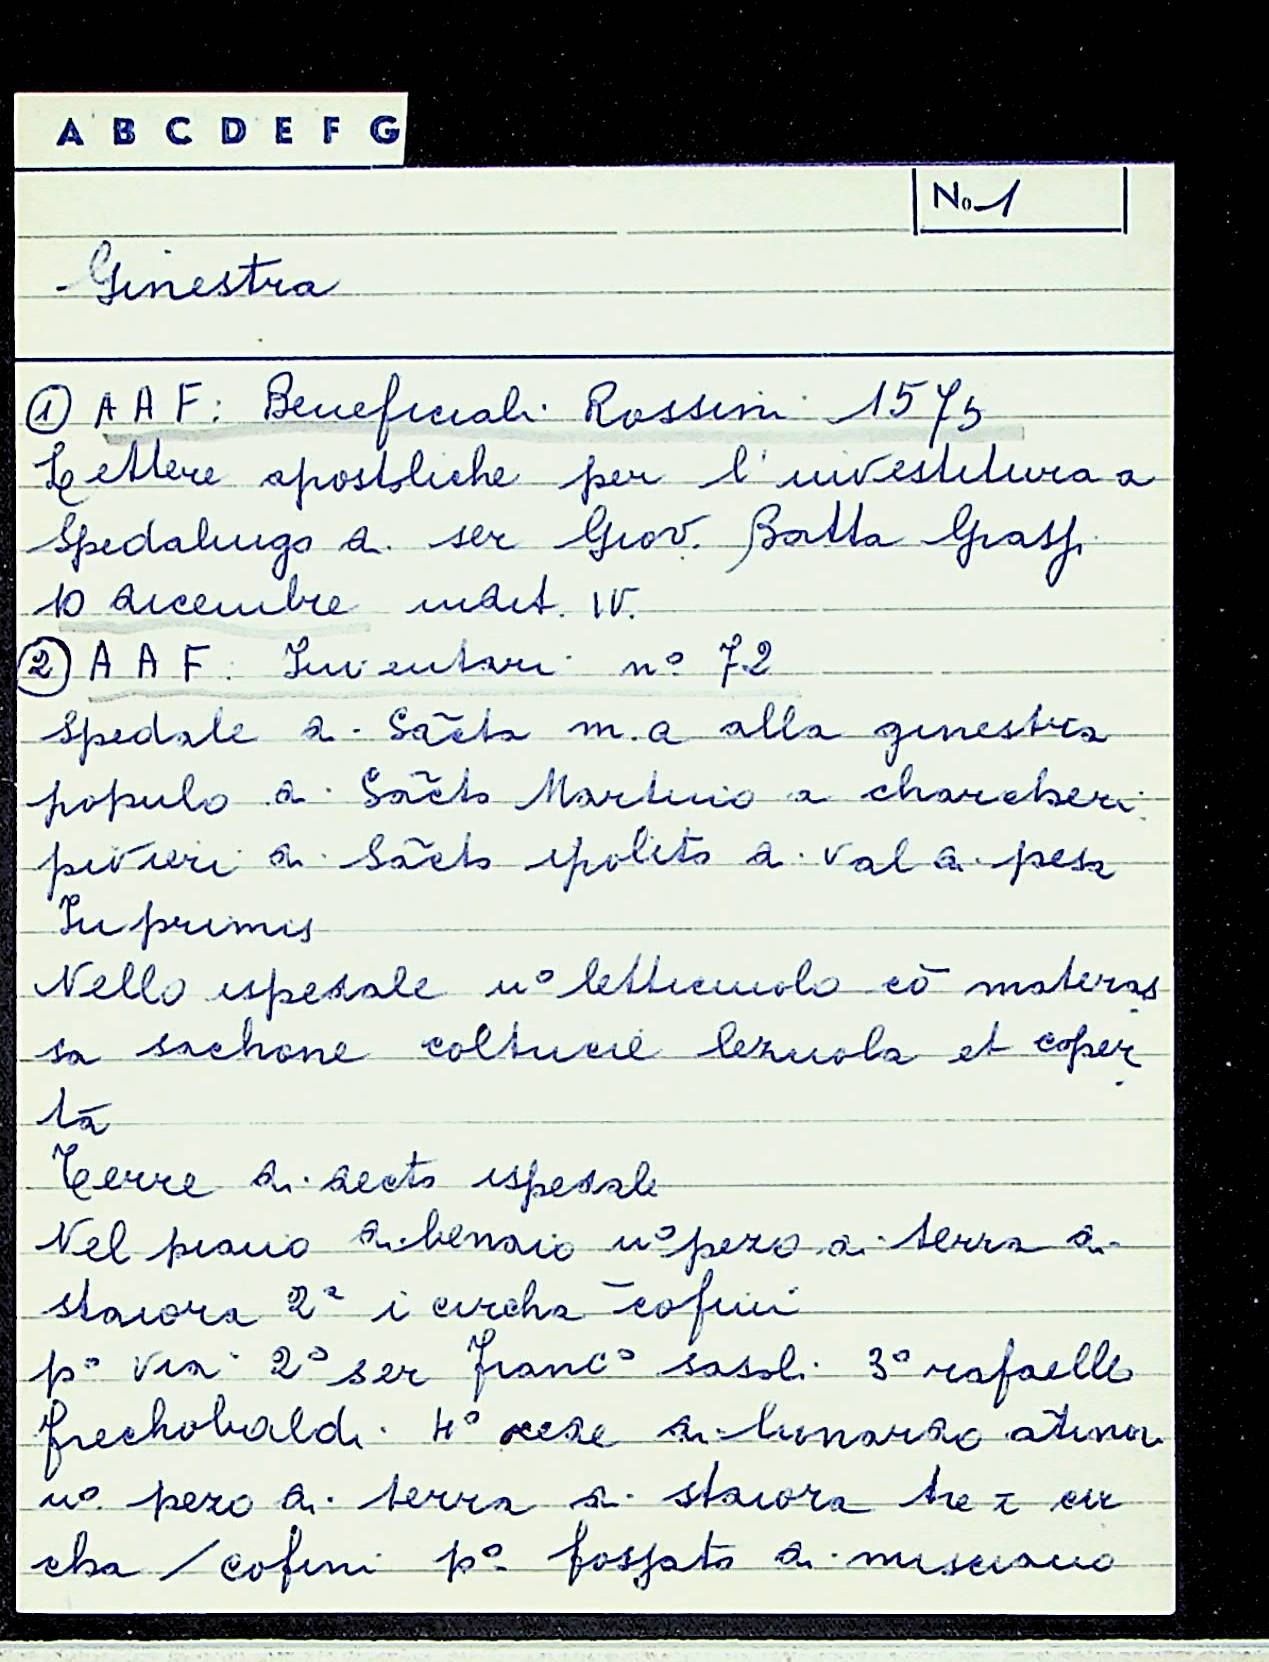 A B C D E F G
No 1
Ginestra
① A A F: Beneficiali Rossini 1575
Lettere apostoliche per l'investitura a
Spedalugo di ser Giov. Batta Grassi
10 dicembre indit. IV.
② A A F. Inventari n° 72
Spedale di Sãcta m.a alla ginestra
populo di Sãcto Martino a charcheri
pivieri di Sãcto ipolito di val di pesa
In primis
Nello ispedale uº letticciuolo cõ materas
sa sachone coltricie lezuola et coper
ta
Terre di decto ispedale
Nel piano di benaio uº pezo di terra di
staiora 2ª i circha cofini
pº via 2º ser Francº sasoli 3º rafaello
frechobaldi 4º rede di lionardo
uº pezo di terra di staiora tre i cir
cha / cofini pº fossato di misciano